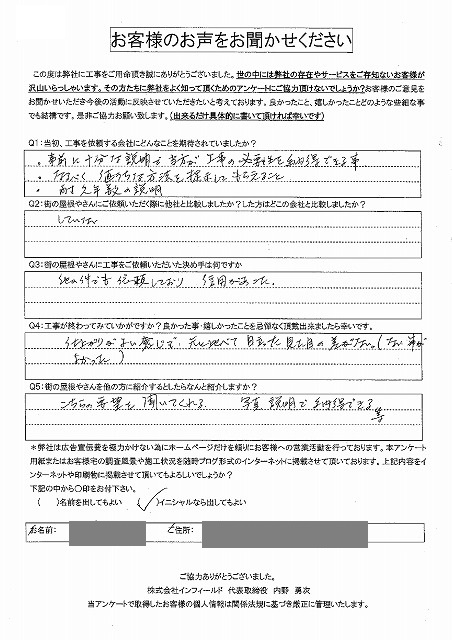 お客様のお声をお聞かせください
この度は弊社に工事をご用命頂き誠にありがとうございました。世の中には弊社の存在やサービスをご存知ないお客様が
沢山いらっしゃいます。その方たちに弊社をよく知って頂くためのアンケートにご協力頂けないでしょうか?お客様のご意見を
お聞かせいただき今後の活動に反映させていただきたいと考えております。良かったこと、嬉しかったことどのような些細な事
でも結構です。是非ご協力お願い致します。(出来るだけ具体的に書いて頂ければ幸いです)
Q1:当初、工事を依頼する会社にどんなことを期待されていましたか?
・事前に十分な説明で当方が工事の必要性を納得できる事
・なるべく価する方法を提示してもらえること
・耐久年数の説明
Q2:街の屋根やさんにご依頼いただく際に他社と比較しましたか?した方はどこの会社と比較しましたか?
していない
Q3:街の屋根やさんに工事をご依頼いただいた決め手は何ですか
他の件でも依頼しており 信用があった。
Q4:工事が終わってみていかがですか?良かった事・嬉しかったことを忌憚なく頂戴出来ましたら幸いです。
仕上がりがよい感じで、元と比べて目立った見た目の差がない。(ない事が
よかった)
Q5:街の屋根やさんを他の方に紹介するとしたらなんと紹介しますか?
こちらの希望を聞いてくれる 写真説明で納得できる 等
*弊社は広告宣伝費を極力かけない為にホームページだけを頼りにお客様への営業活動を行っております。本アンケート
用紙またはお客様宅の調査風景や施工状況を随時ブログ形式のインターネットに掲載させて頂いております。上記内容をイ
ンターネットや印刷物に掲載させて頂いてもよろしいでしょうか?
下記の中から○印をお付下さい。
( )名前を出してもよい (✓)イニシャルなら出してもよい
お名前: ご住所:
ご協力ありがとうございました。
株式会社インフィールド 代表取締役 内野 勇次
当アンケートで取得したお客様の個人情報は関係法規に基づき厳正に管理いたします。